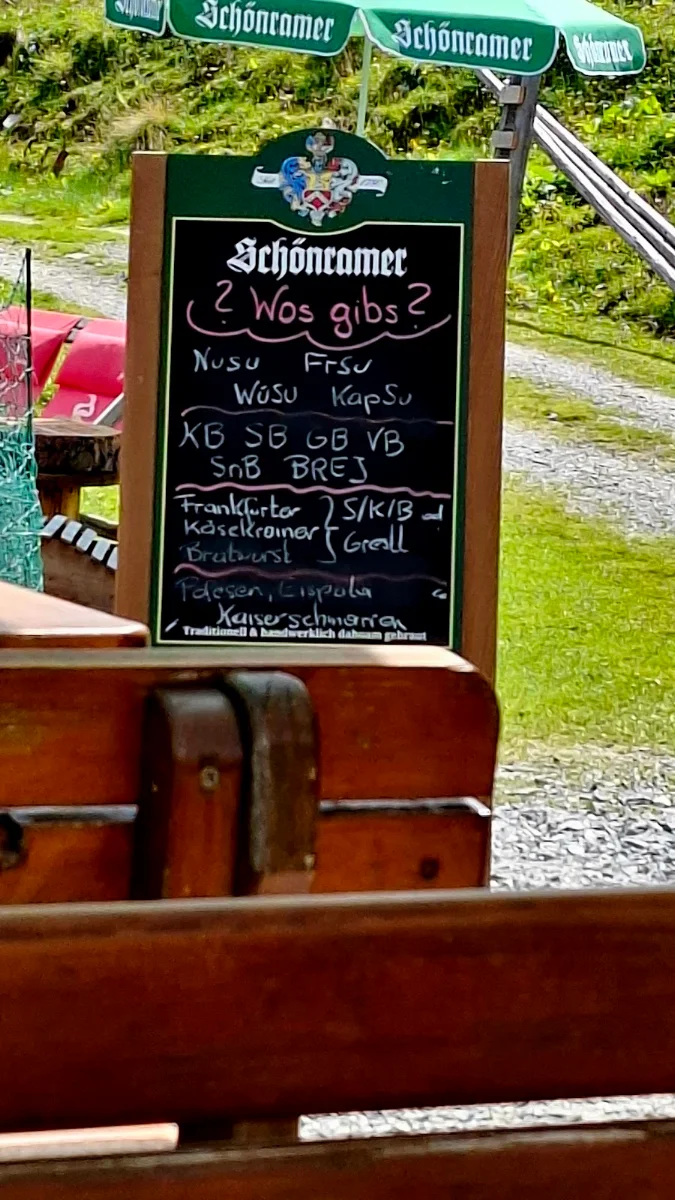 Schönramer Schönramer Schönramer Schönramer
Schönramer
? Wos gibs?
Nusu Frsu
Wüsu KapSu
KB SB GB VB
SnB BREJ
Frankfurter } S/K/B
Käsekrainer
Bratwurst
Kaiserschmarren
Traditionell & handwerklich dahoam gebraut